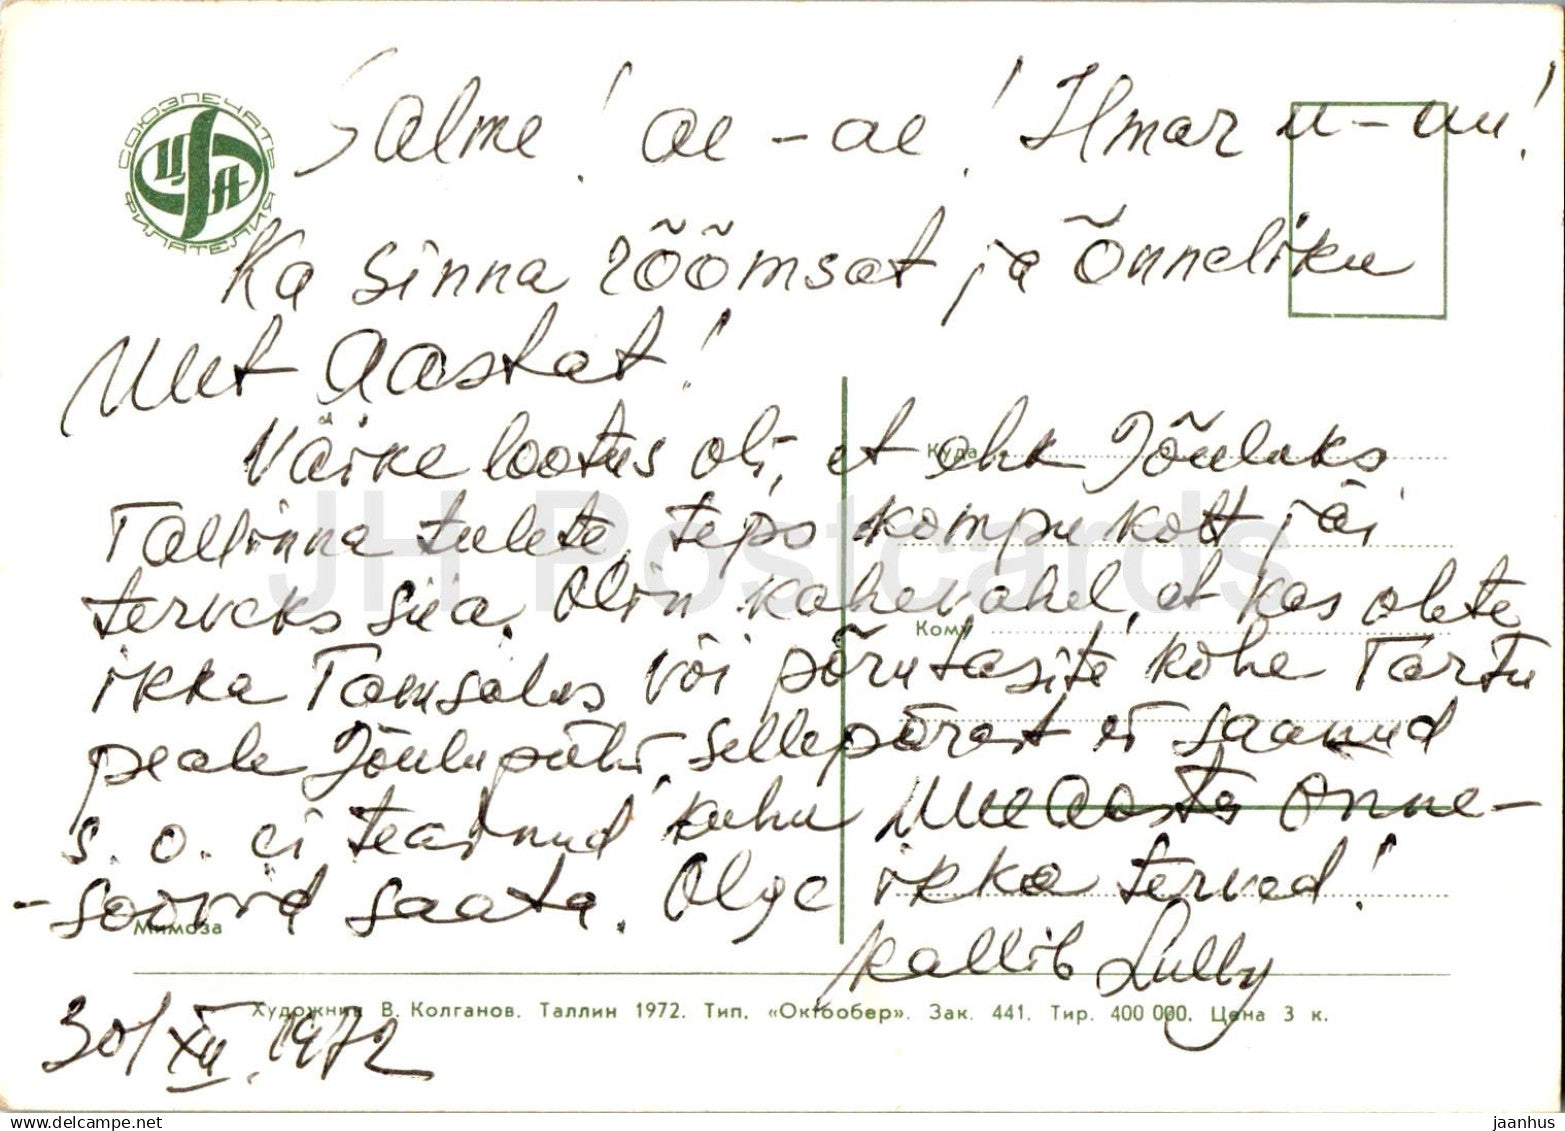 СОЮЗПЕЧАТЬ
ЦФА
ФИЛАТЕЛИЯ
Salme! ae-ae! Ilmar u-uu!
Ka sinna rõõmsat ja õnneliku
Uut Aastat!
Väike lootus oli, et ehk Jõuluks
Tallinna tulete, teps kompukott jäi
terveks siia. Olin kahevahel, et kas olete
ikka Tamsalus või põrutasite kohe Tartu
peale Jõulupühi, sellepärast ei saanud
s. o. ei teadnud kuhu Uue Aasta õnne-
-soovid saata. Olge ikka terved!
kallib Lully
30/XII. 1972
Куда
Кому
Мимоза
Художник В. Колганов. Таллин 1972. Тип. «Октообер». Зак. 441. Тир. 400 000. Цена 3 к.
JH Postcards
jaanhus
www.delcampe.net